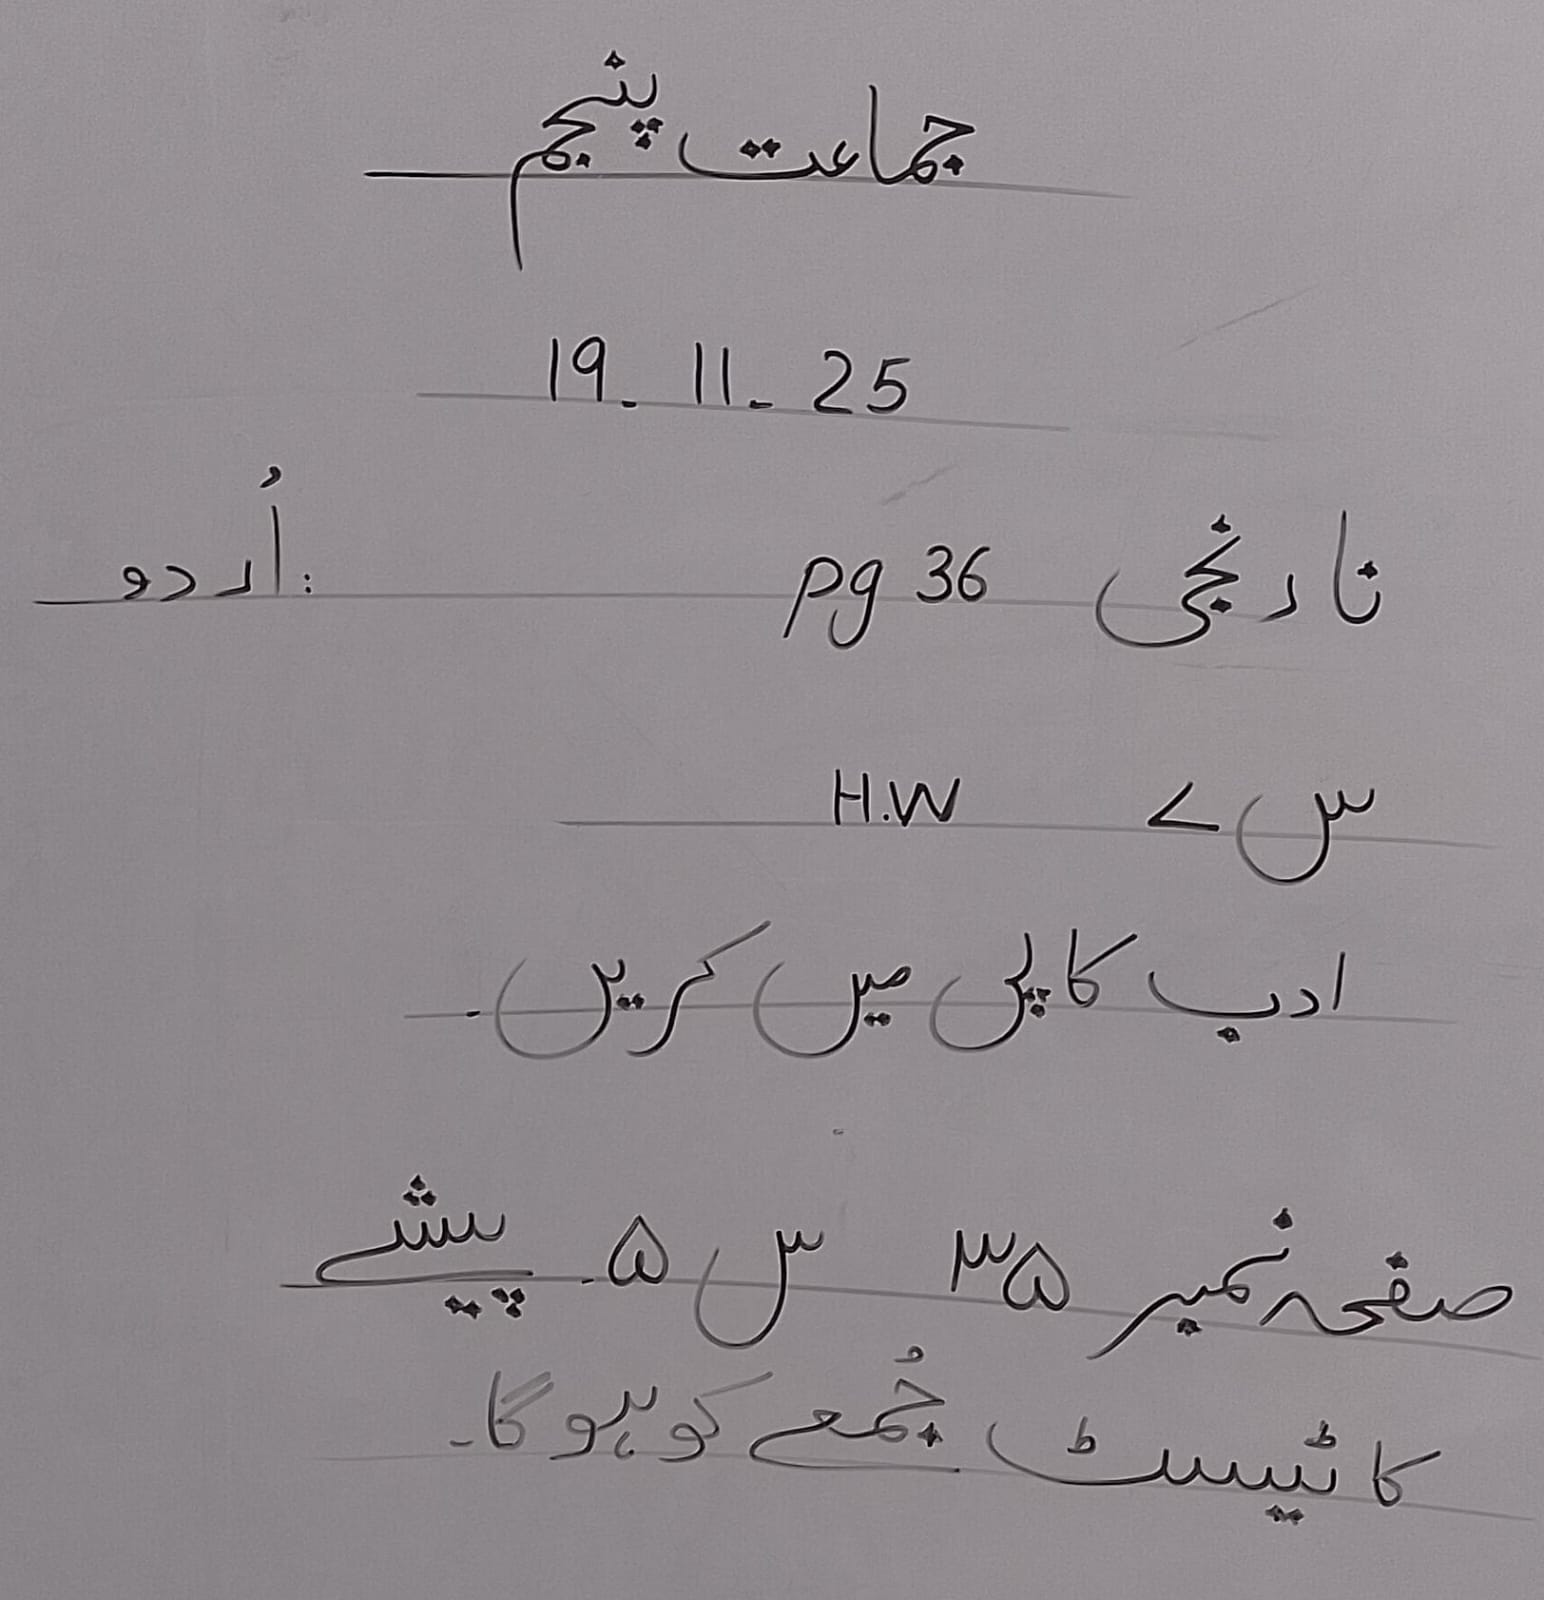 جماعت پنجم
19. 11. 25
نارنجی pg 36 :اُردو
س ے H.W
ادب کاپی میں کریں۔
صفحہ نمبر ۳۵ س ۵۔ پیشے
کا ٹیسٹ جُمعے کو ہو گا۔